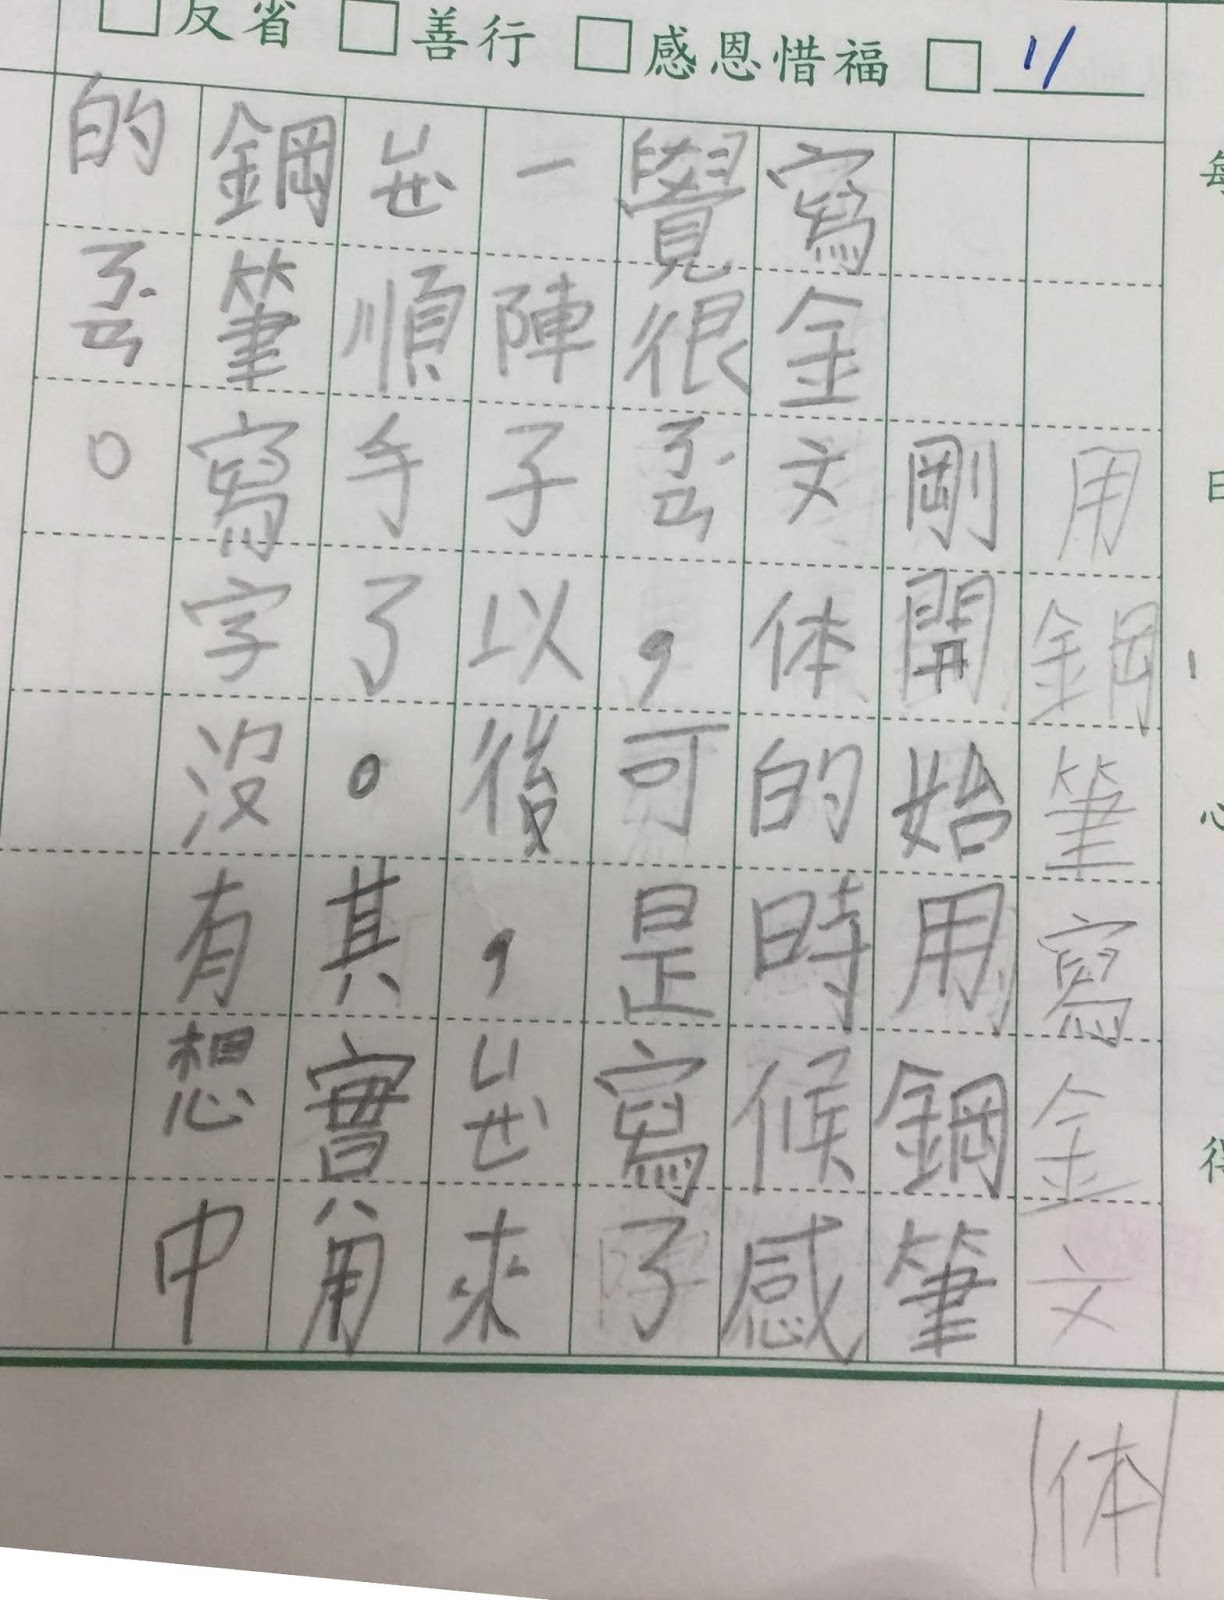 反省 善行 感恩惜福
用鋼筆寫金文体
剛開始用鋼筆
寫金文体的時候感
覺很ㄋㄢˊ，可是寫了
一陣子以後，ㄩㄝˋ來
ㄩㄝˋ順手了。其實用
鋼筆寫字沒有想中
的ㄋㄢˊ。